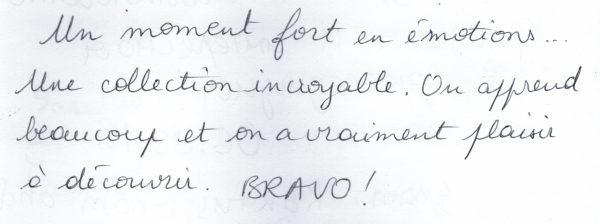 Un moment fort en émotions...
Une collection incroyable. On apprend
beaucoup et on a vraiment plaisir
à découvrir. BRAVO !